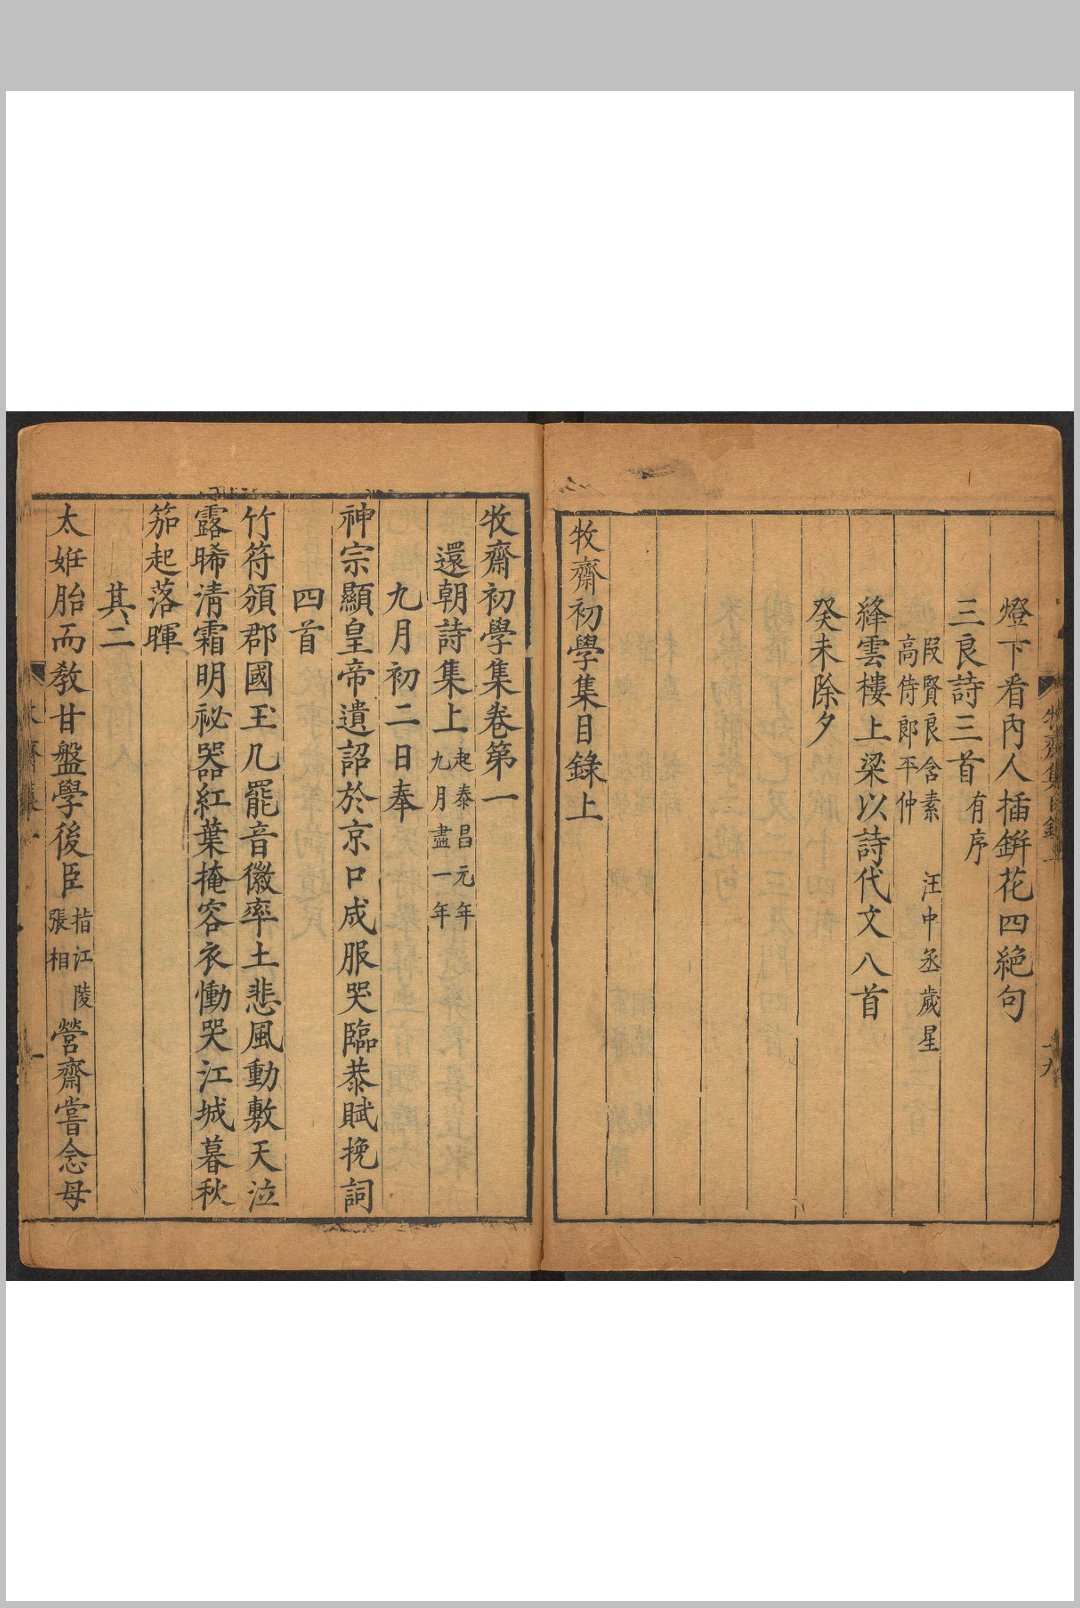 燈下看內人插缾花四絕句
三良詩三首有序
段賢良含素 汪中丞歲星
高侍郎平仲
絳雲樓上梁以詩代文八首
癸未除夕
牧齋初學集目錄上
牧齋初學集卷第一
還朝詩集上起泰昌元年
九月盡一年
九月初二日奉
神宗顯皇帝遺詔於京口成服哭臨恭賦挽詞
四首
竹符頒郡國玉几罷音徽率土悲風動敷天泣
露晞清霜明祕器紅葉掩容衣慟哭江城暮秋
笳起落暉
其二
太姙胎而教甘盤學後臣指江陵
張相
營齋嘗念母